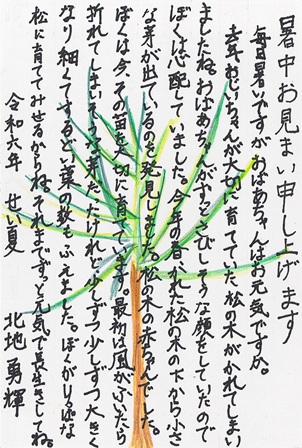 暑中お見まい申し上げます
毎日暑いですがおばあちゃんはお元気ですか。
去年おじいちゃんが大切に育てていた松の木がかれてしま
いましたね。おばあちゃんがずっとさびしそうな顔をしていたので
ぼくは心配していました。今年の春かれた松の木の下から小さ
な芽が出ているのを発見しました。松の木の赤ちゃんでした。
ぼくは今、その苗を大切に育てています。最初は風がふいたら
折れてしまいそうな芽だったけれど少しずつ少しずつ大きく
なり細くてするどい葉の数もふえました。ぼくがりっぱな
松に育ててみせるからね。それまでずっと元気で長生きしてね。
令和六年 せい夏
北地 勇輝